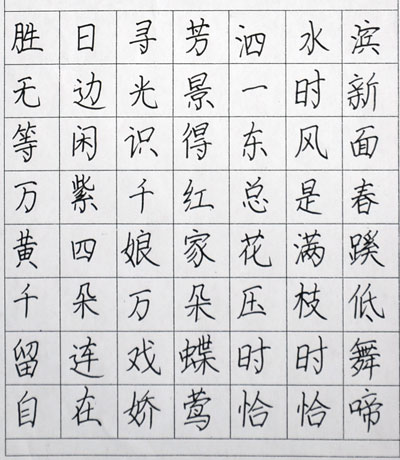 胜日寻芳泗水滨
无边光景一时新
等闲识得东风面
万紫千红总是春
黄四娘家花满蹊
千朵万朵压枝低
留连戏蝶时时舞
自在娇莺恰恰啼